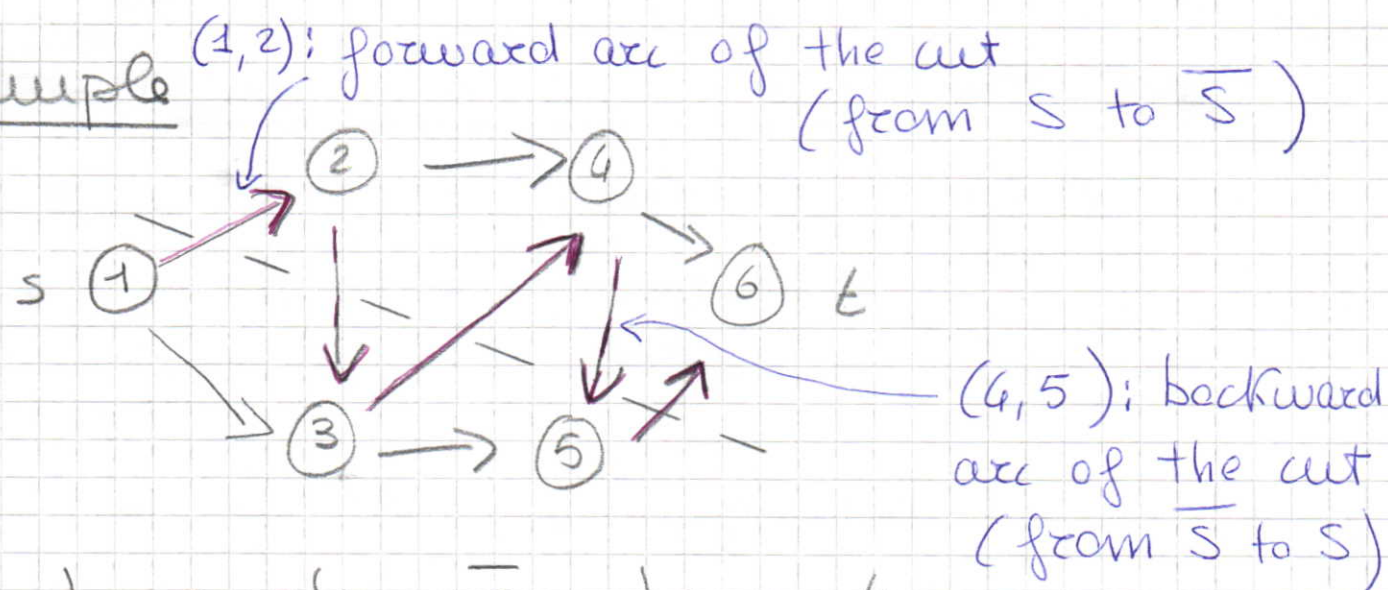 (1,2): forward arc of the cut
(from S to S̅)
mple
2
4
s 1
6 t
3
5
(4,5): backward
arc of the cut
(from S̅ to S)